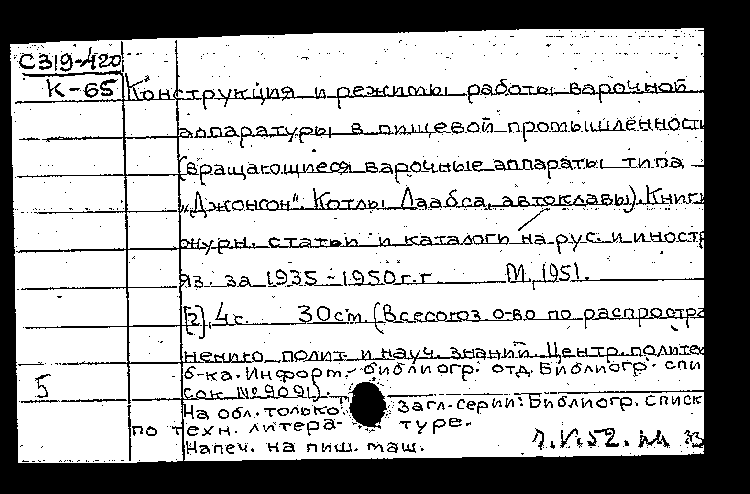 С319-420
К-65 Конструкция и режимы работы варочной
аппаратуры в пищевой промышленност
(вращающиеся варочные аппараты типа
„Джонсон". Котлы Лаабса, автоклавы). Книги
журн. статьи и каталоги на рус. и иностр
яз. за 1935-1950 г.г М., 1951.
[2], 4 с. 30 ст. (Всесоюз о-во по распростра
нению полит. и науч. знаний. Центр. политех
б-ка. Информ.-библиогр. отд. Библиогр. спи
5 сок № 9091).
На обл. только загл. серии: Библиогр. списк
по техн. литера- туре.
Напеч. на пиш. маш. 7.VI.52.